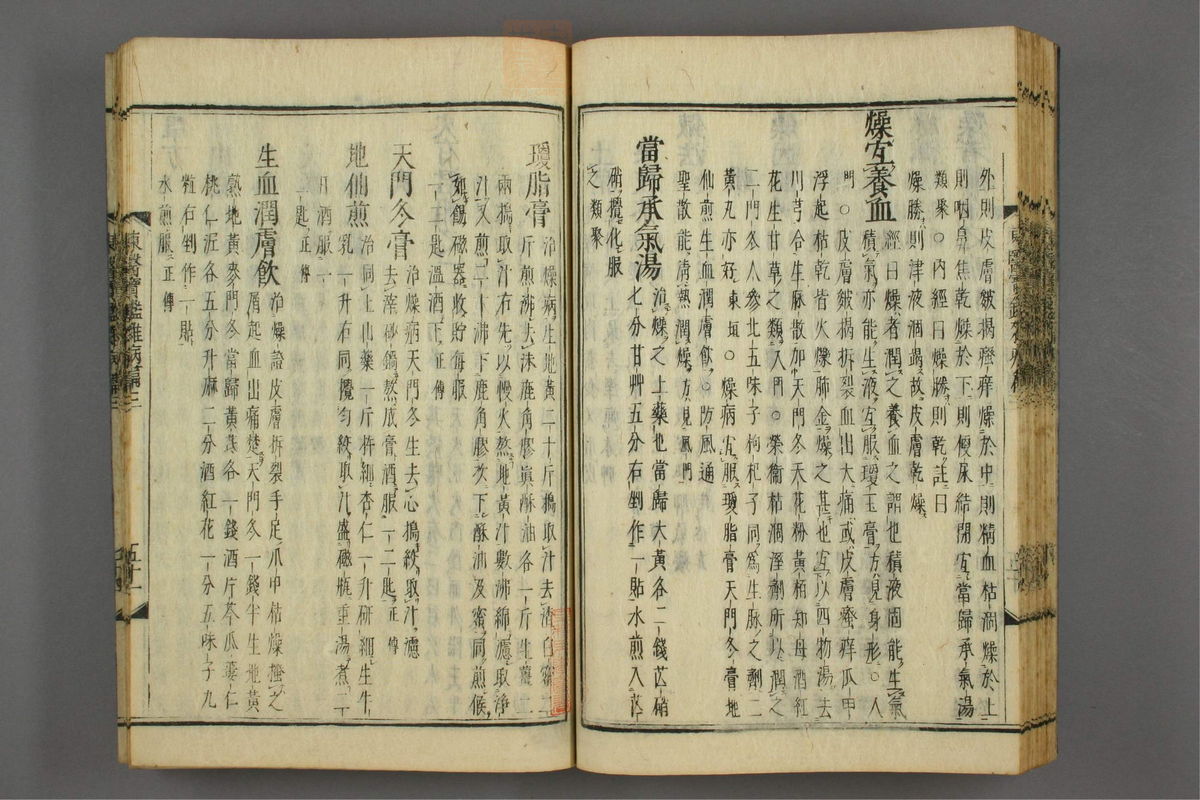 外則皮膚皴揭瘙痒燥於中則精血枯涸燥於上
則咽鼻焦乾燥於下則便尿結閉宜當歸承氣湯
類聚○內經曰燥勝則乾註曰
燥勝則津液涸竭故皮膚乾燥
燥宜養血
經曰燥者潤之養血之謂也積液固能生氣
積氣亦能生液宜服瓊玉膏方見身形○人
門○皮膚皴揭拆裂血出大痛或皮膚瘙痒爪甲
浮起枯乾皆火爍肺金燥之甚也宜以四物湯去
川芎合生脉散加天門冬天花粉黃柏知母酒紅
花生甘草之類入門○榮衛枯涸溼劑所以潤之
二門冬人參北五味子枸杞子同為生脉之劑二
黃丸亦好東垣○燥病宜服瓊脂膏天門冬膏地
仙煎生血潤膚飮○防風通
聖散能淸熱潤燥方見風門
當歸承氣湯
治燥之上藥也當歸大黃各二錢芒硝
七分甘艸五分右剉作一貼水煎入芒
硝攪化服
之類聚
瓊脂膏
治燥病生地黃二十斤搗取汁去渣白蜜二
斤煎沸去沫鹿角膠眞酥油各一斤生薑二
兩搗取汁右先以慢火熬地黃汁數沸綿濾取淨
汁又煎二十沸下鹿角膠次下酥油及蜜同煎候
如餳磁器收貯每服
一二三匙溫酒下正傳
天門冬膏
治燥病天門冬生去心搗絞取汁濾
去滓砂鍋熬成膏酒服一二匙正傳
地仙煎
治同上山藥一斤杵細杏仁一升硏細生牛
乳一升右同攪勻絞取汁盛磁甁重湯煮二
日酒服一
二匙正傳
生血潤膚飮
治燥證皮膚拆裂手足爪甲枯燥搔之
屑起血出痛楚天門冬一錢半生地黃
熟地黃麥門冬當歸黃芪各一錢酒片芩瓜蔞仁
桃仁泥各五分升麻二分酒紅花一分五味子九
粒右剉作一貼
水煎服正傳
東醫寶鑑雜病篇三